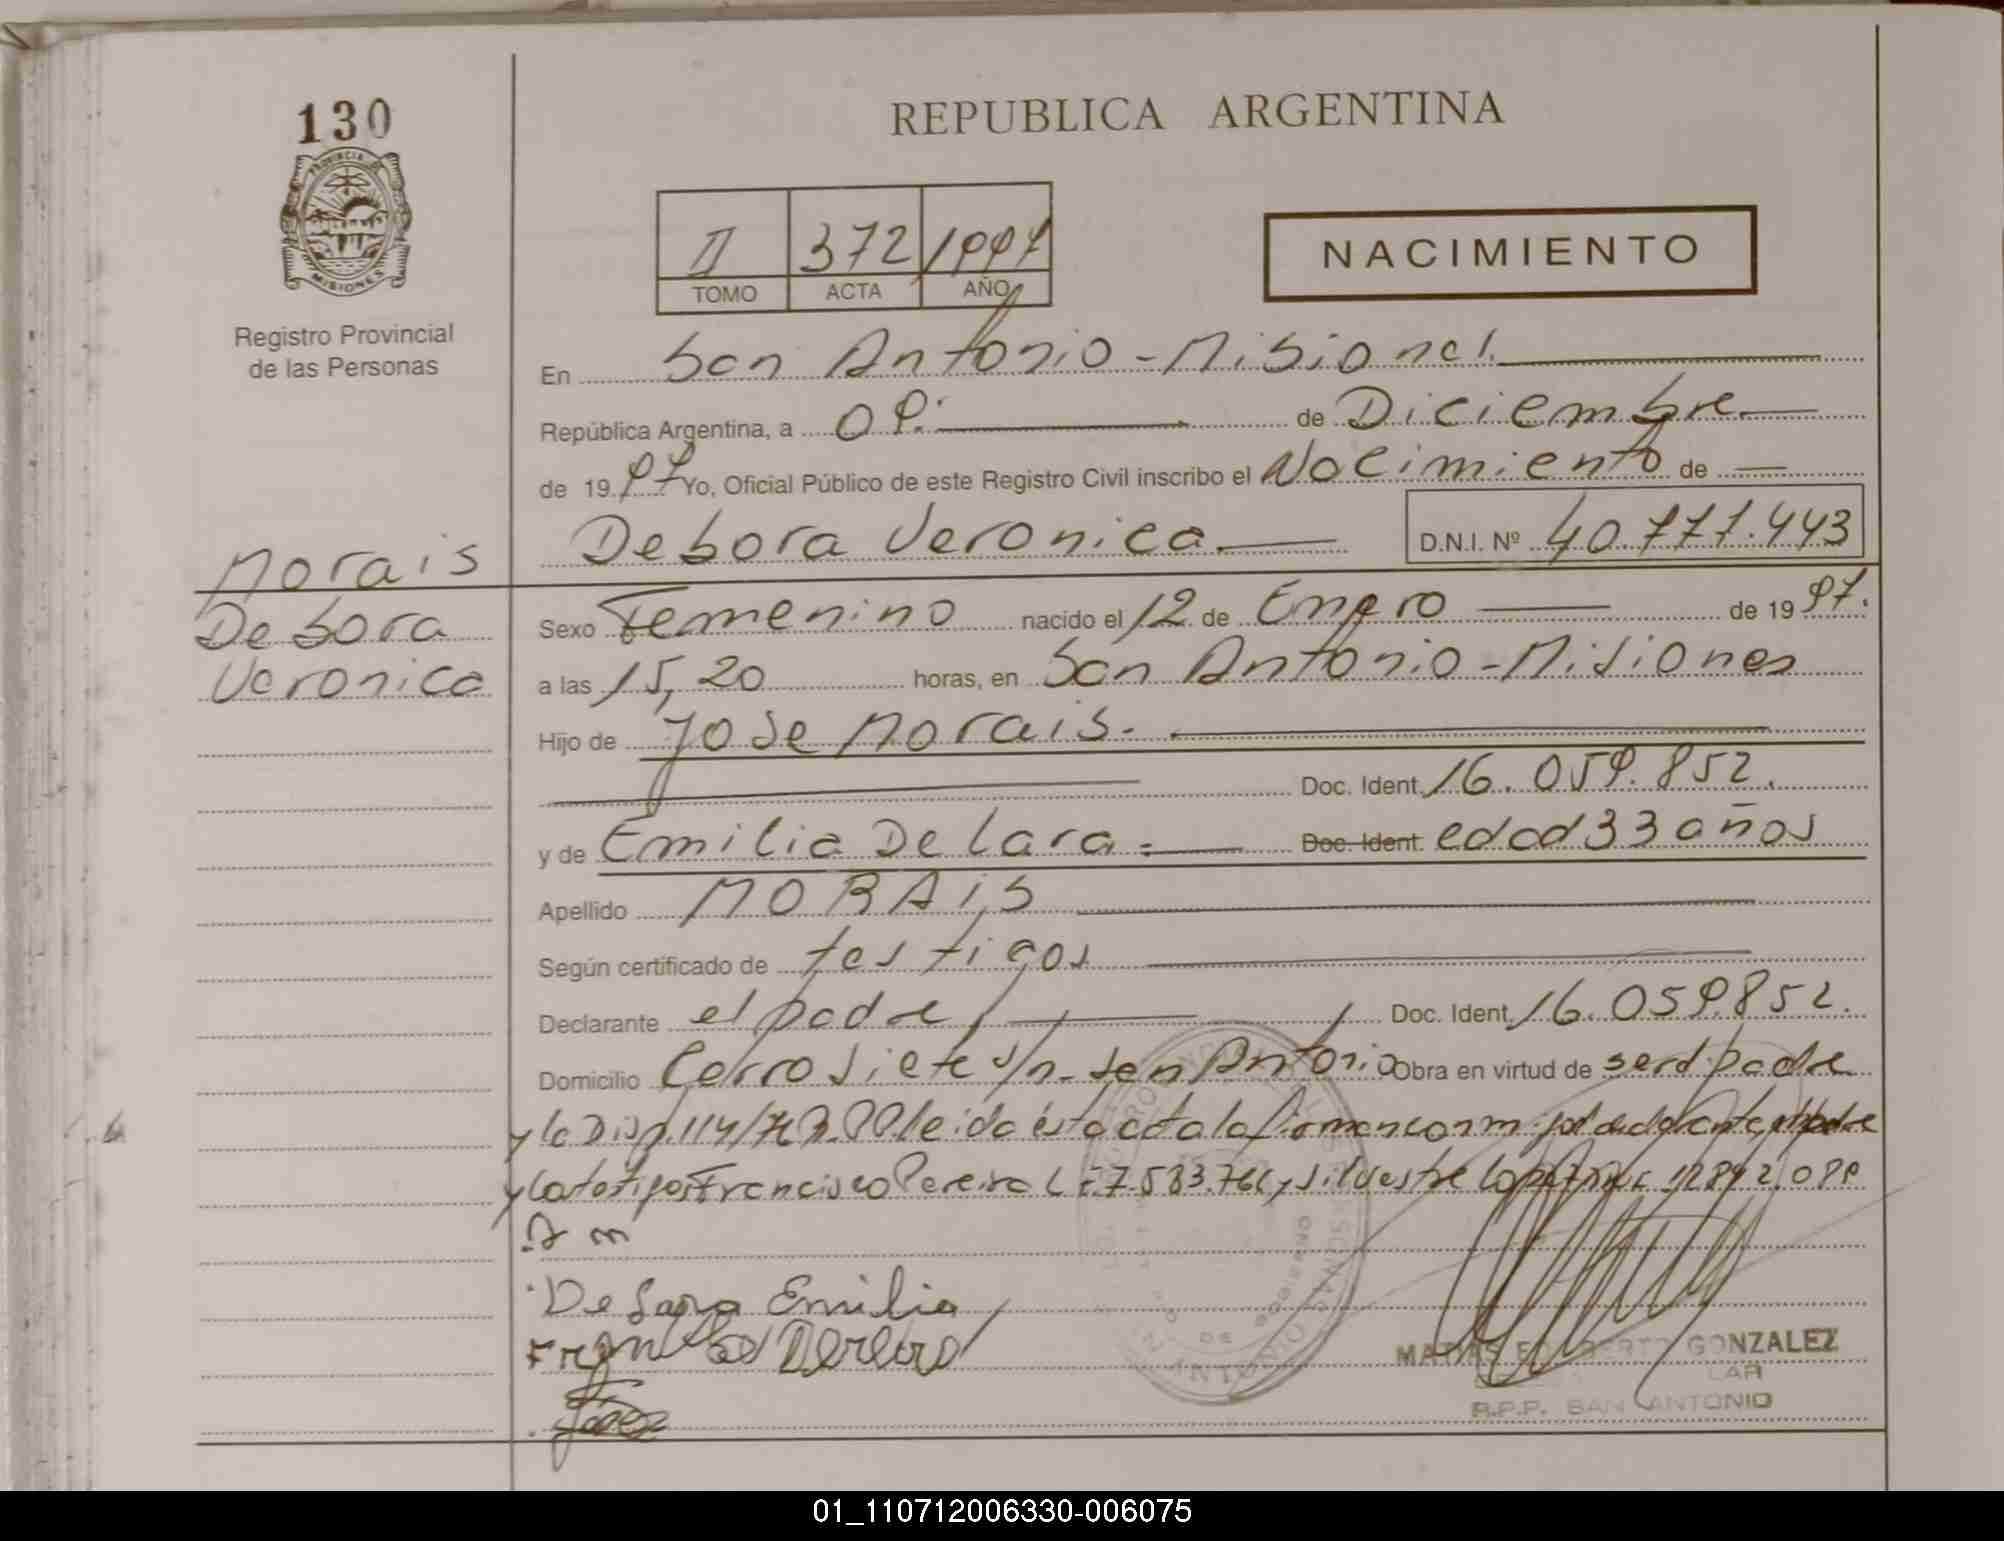 130
REPUBLICA ARGENTINA
PROVINCIA DE
MISIONES
II 372 1997
TOMO ACTA AÑO
NACIMIENTO
Registro Provincial
de las Personas
En San Antonio - Misiones.
República Argentina, a 09. de Diciembre
de 1997 Yo, Oficial Público de este Registro Civil inscribo el Nacimiento de
Debora Veronica. D.N.I. Nº 40.777.443
Morais
Debora
Veronica
Sexo Femenino nacido el 12 de Enero de 1997.
a las 15,20 horas, en San Antonio - Misiones
Hijo de Jose Morais.
Doc. Ident. 16.059.852.
y de Emilia De Lara. Doc. Ident. edad 33 años
Apellido MORAIS
Según certificado de testigos
Declarante el padre Doc. Ident. 16.059.852.
Domicilio Cerro Siete s/n. San Antonio Obra en virtud de ser el padre
y la Disp. 114/ leida ésta acta la firman conm. el declarante, la madre
y los testigos Francisco Pereira y Silvestre Lopez
De Lara Emilia
Pereira
MATIAS EDILBERTO GONZALEZ
R.P.P. SAN ANTONIO
01_110712006330-006075